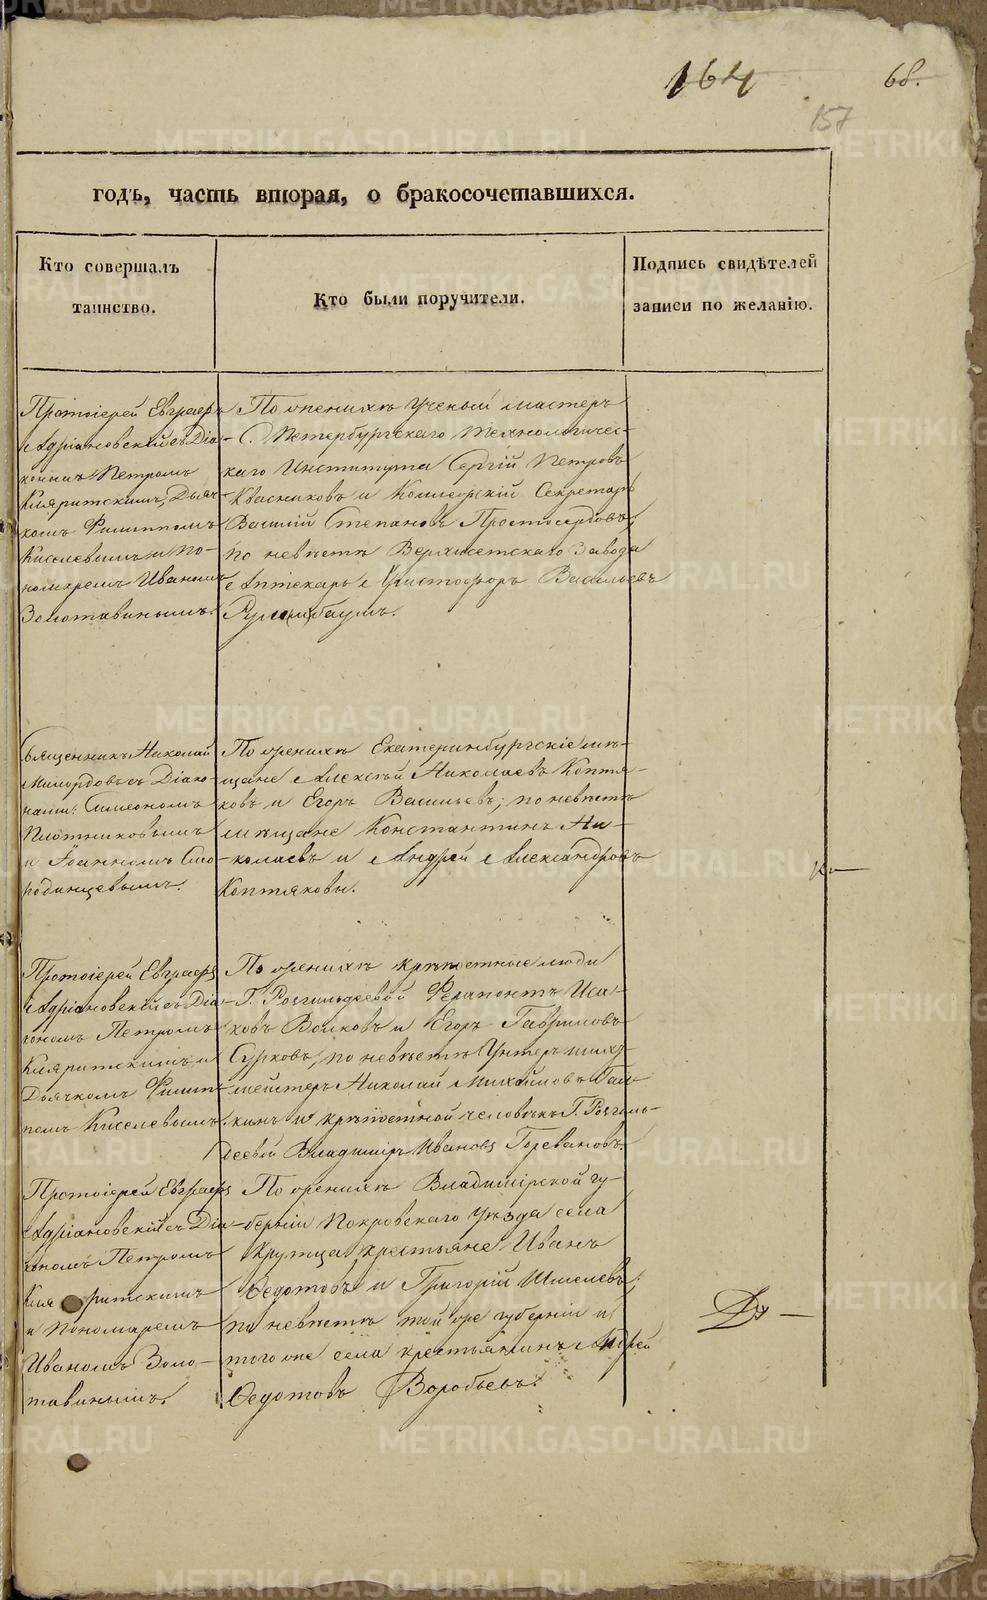 164
68.
157
годъ, часть вторая, о бракосочетавшихся.
Кто совершалъ
таинство.
Кто были поручители.
Подпись свидѣтелей
записи по желанію.
Протоіерей Евграфъ
Адріановскій съ Діа-
кономъ Петромъ
Кляритскимъ, Дьяч-
комъ Филиппомъ
Киселевымъ и По-
номаремъ Иваномъ
Золотавинымъ.
По женихѣ Ученый мастеръ
С. Петербургскаго Технологичес-
каго Института Сергій Петровъ
Квасниковъ и Коллежскій Секретарь
Василій Степановъ Простосердовъ;
по невѣстѣ Верхисетскаго Завода
Аптекарь Христофоръ Васильевъ
Священникъ Николай
Милордовъ съ Діако-
нами: Симеономъ
Плотниковымъ
и Іоанномъ Смо-
родинцевымъ.
По женихѣ Екатеринбургскіе мѣ-
щане Алексѣй Николаевъ Коптя-
ковъ и Егоръ Васильевъ; по невѣстѣ
мѣщане Константинъ Ни-
колаевъ и Андрей Александровъ
Коптяковы.
Протоіерей Евграфъ
Адріановскій съ Діа-
кономъ Петромъ
Кляритскимъ и
Дьячкомъ Филип-
помъ Киселевымъ.
По женихѣ крѣпостные люди
Г. Розгильдеевой Ферапонтъ Иса-
ковъ Волковъ и Егоръ Гавриловъ
Сурковъ, по невѣстѣ Унтеръ-шихт-
мейстеръ Николай Михайловъ Гал-
кинъ и крѣпостной человѣкъ Г. Розгиль-
деевой Владиміръ Ивановъ Горевановъ.
Протоіерей Евграфъ
Адріановскій съ Діа-
кономъ Петромъ
Кляритскимъ
и Пономаремъ
Иваномъ Золо-
тавинымъ.
По женихѣ Владимірской гу-
берніи Покровскаго уѣзда села
Крутца крестьяне Иванъ
Ѳедотовъ и Григорій Шмелевъ;
по невѣстѣ той же губерніи и
того же села крестьянинъ Андрей
Ѳедотовъ Воробьевъ.
METRIKI.GASO-URAL.RU